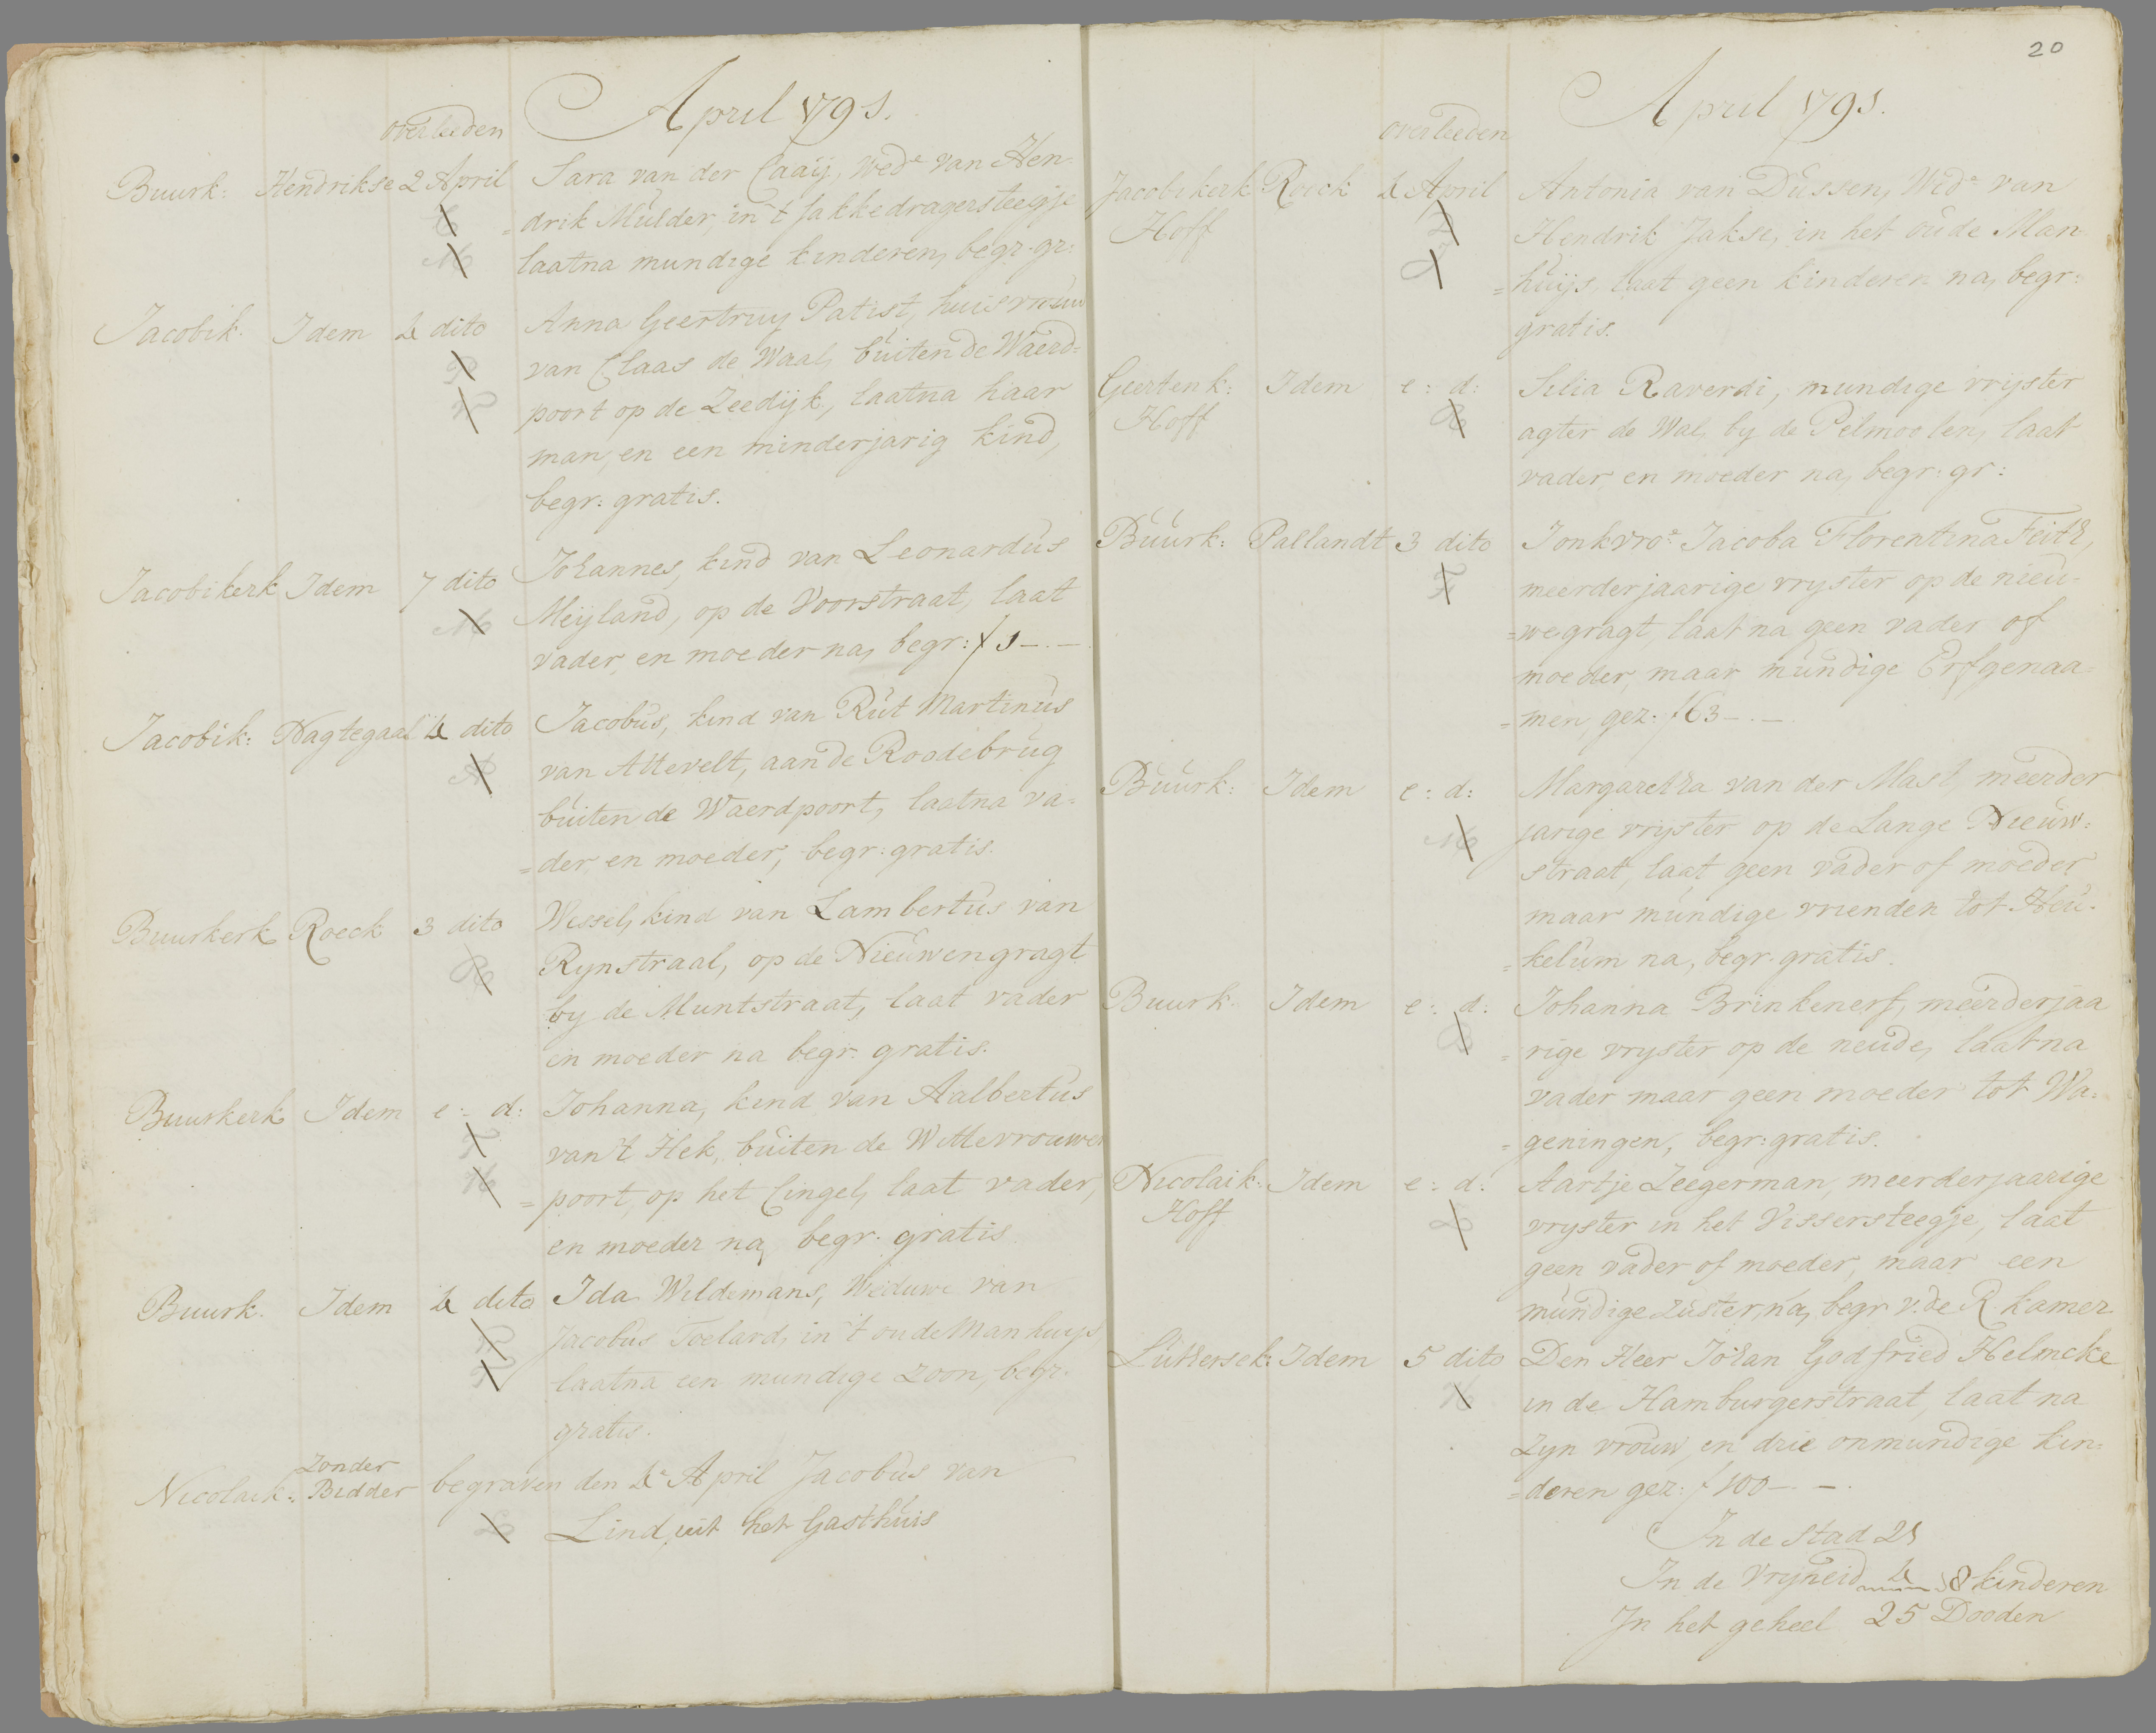 April 1791.
overleeden
Buurk: Hendrikse 2 April Sara van der Caaij, wed.e van Hen
=drik Mulder, in 't Jakkedragersteegje
laatna mundige kinderen, begr. gr:
Jacobik. Idem 4 dito Anna Geertruy Patist, huisvrouw
van Claas de Waal, buiten de Waerd=
poort op de Zeedijk, laatna haar
man, en een minderjarig kind,
begr: gratis.
Jacobikerk Idem 7 dito Johannes, kind van Leonardus
Meijland, op de Voorstraat, laat
vader, en moeder na, begr: f 1-.-
Jacobik: Nagtegaal 4 dito Jacobus, kind van Rut Martinus
van Attevelt, aan de Roodebrug
buiten de Waerdpoort, laatna va=
=der en moeder, begr: gratis.
Buurkerk Roeck 3 dito Wessel, kind van Lambertus van
Rynstraal, op de Nieuwengragt
by de Muntstraat, laat vader
en moeder na begr. gratis.
Buurkerk Idem e: d: Johanna, kind van Aalbertus
van 't Hek, buiten de Wittevrouwe
=poort, op het Cingel, laat vader,
en moeder na, begr. gratis
Buurk. Idem 4 dito Ida Wildemans, Weduwe van
Jacobus Toelard, in 't oude Manhuys,
laatna een mundige zoon, begr.
gratis.
Nicolaik: Zonder Bidder begraven den 4e April Jacobus van
Lind, uit het Gasthuis
20
April 1791.
overleeden
Jacobikerk Roeck 4 April Antonia van Dussen, Wed.e van
Hoff Hendrik Jakse, in het oude Man
=huijs, laat geen kinderen na, begr:
gratis.
Geertenk: Idem e: d: Silia Raverdi, mundige vrijster
Hoff agter de Wal, by de Pelmoolen, laat
vader en moeder na, begr: gr:
Buurk: Pallandt 3 dito Jonkvro.e Jacoba Florentina Feith,
meerderjaarige vryster op de nieu=
=wegragt, laat na geen vader of
moeder, maar mundige Erfgenaa=
=men, gez: f 63-.-
Buurk: Idem e: d: Margaretha van der Mast, meerder
jarige vrijster op de Lange Nieuw=
straat, laat geen vader of moeder
maar mundige vrienden tot Heu=
=kelum na, begr. gratis.
Buurk. Idem e: d: Johanna Brinkenerf, meerderjaa
=rige vryster op de neude, laat na
vader maar geen moeder tot Wa=
=geningen, begr: gratis.
Nicolaik: Idem e: d: Aartje Zeegerman, meerderjaarige
Hoff vryster in het Vissersteegje, laat
geen vader of moeder, maar een
mundige zuster, na, begr v: de R. kamer
Luthersek: Idem 5 dito Den Heer Johan Godfried Helmcke
in de Hamburgerstraat, laat na
zyn vrouw, en drie onmundige kin=
=deren gez: f 100-.-.
In de Stad 21
In de Vryheid 4 8 kinderen
In het geheel 25 Dooden